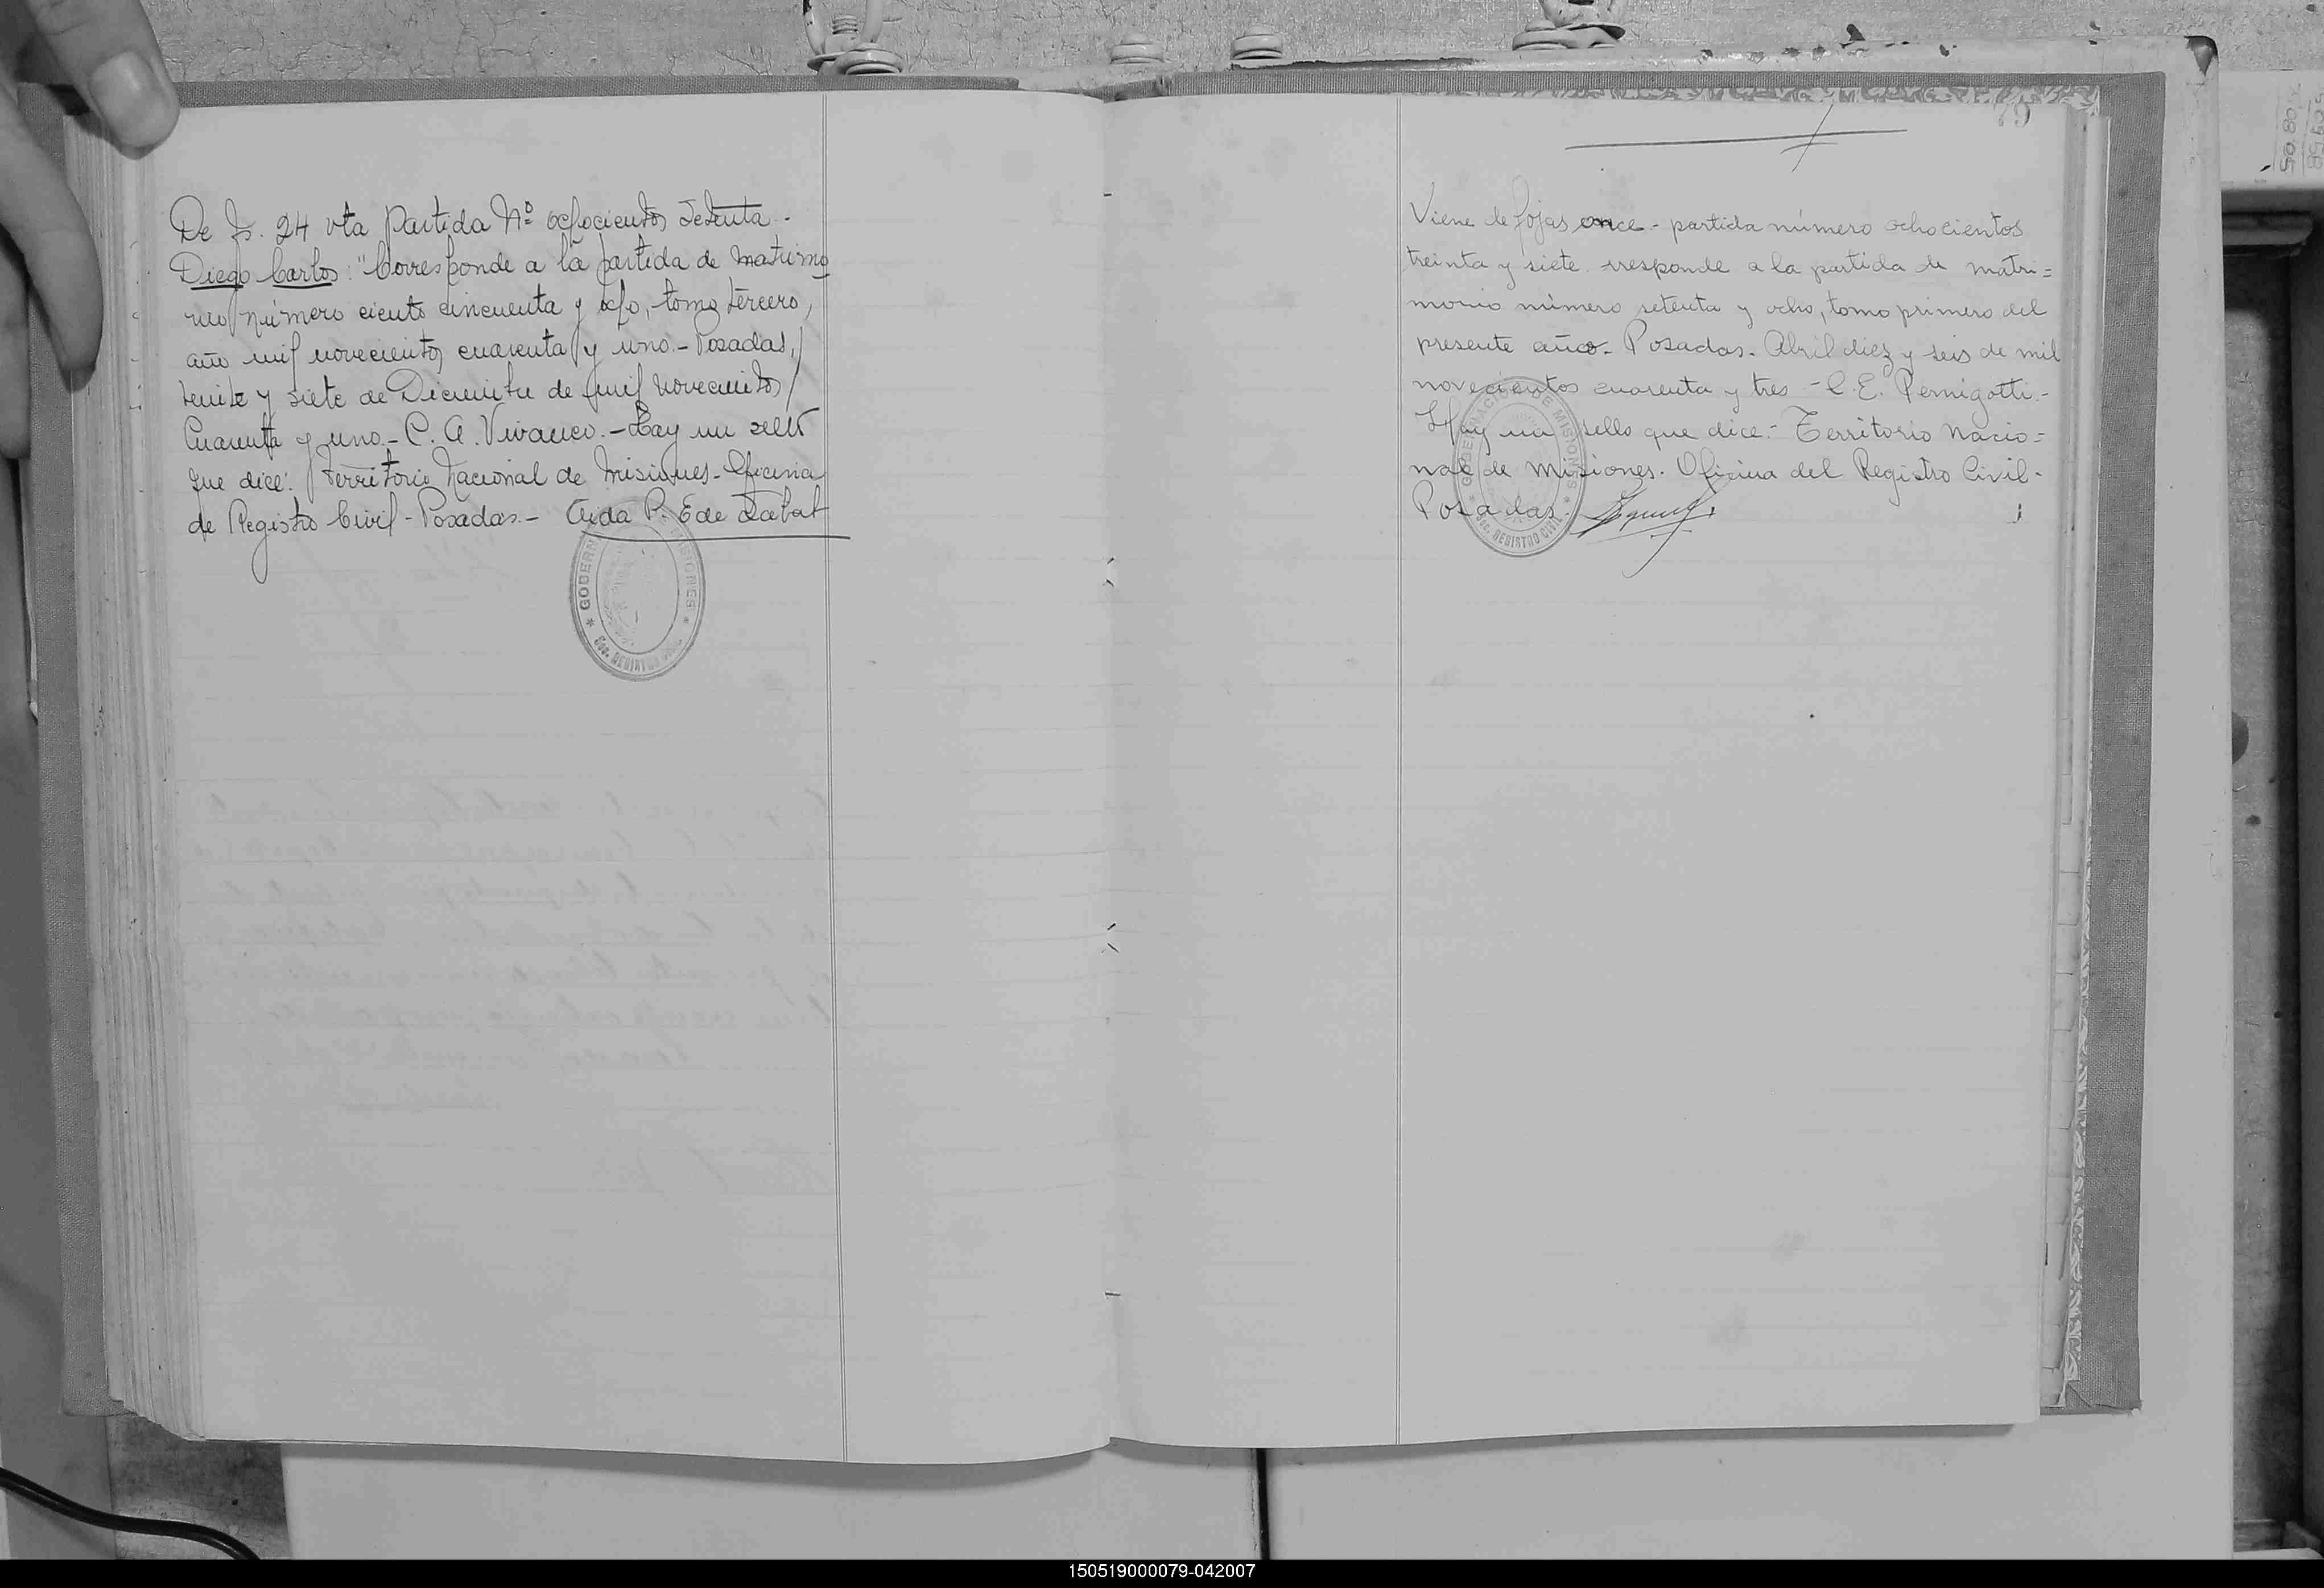 De fs. 24 vta Partida Nº ochocientos setenta.-
Diego Carlos: "Corresponde a la partida de matrimo
nio número ciento cincuenta y ocho, tomo tercero,
año mil novecientos cuarenta y uno.- Posadas,
veinte y siete de Diciembre de mil novecientos
Cuarenta y uno.- C. A. Vivanco.- Hay un sello
que dice: Territorio Nacional de Misiones- Oficina
de Registro Civil - Posadas.- Aida P. E de Labat
GOBERN MISIONES
Sec. REGISTRO
79
Viene de fojas once - partida número ochocientos
treinta y siete. rresponde a la partida de matri=
monio número setenta y ocho, tomo primero del
presente año. Posadas. Abril diez y seis de mil
novecientos cuarenta y tres - C. E. Pernigotti.-
Hay un sello que dice:- Territorio Nacio=
nal de Misiones. Oficina del Registro Civil-
Posadas.
GOBERNACIÓN DE MISIONES
Sec. REGISTRO CIVIL
50.80
150519000079-042007